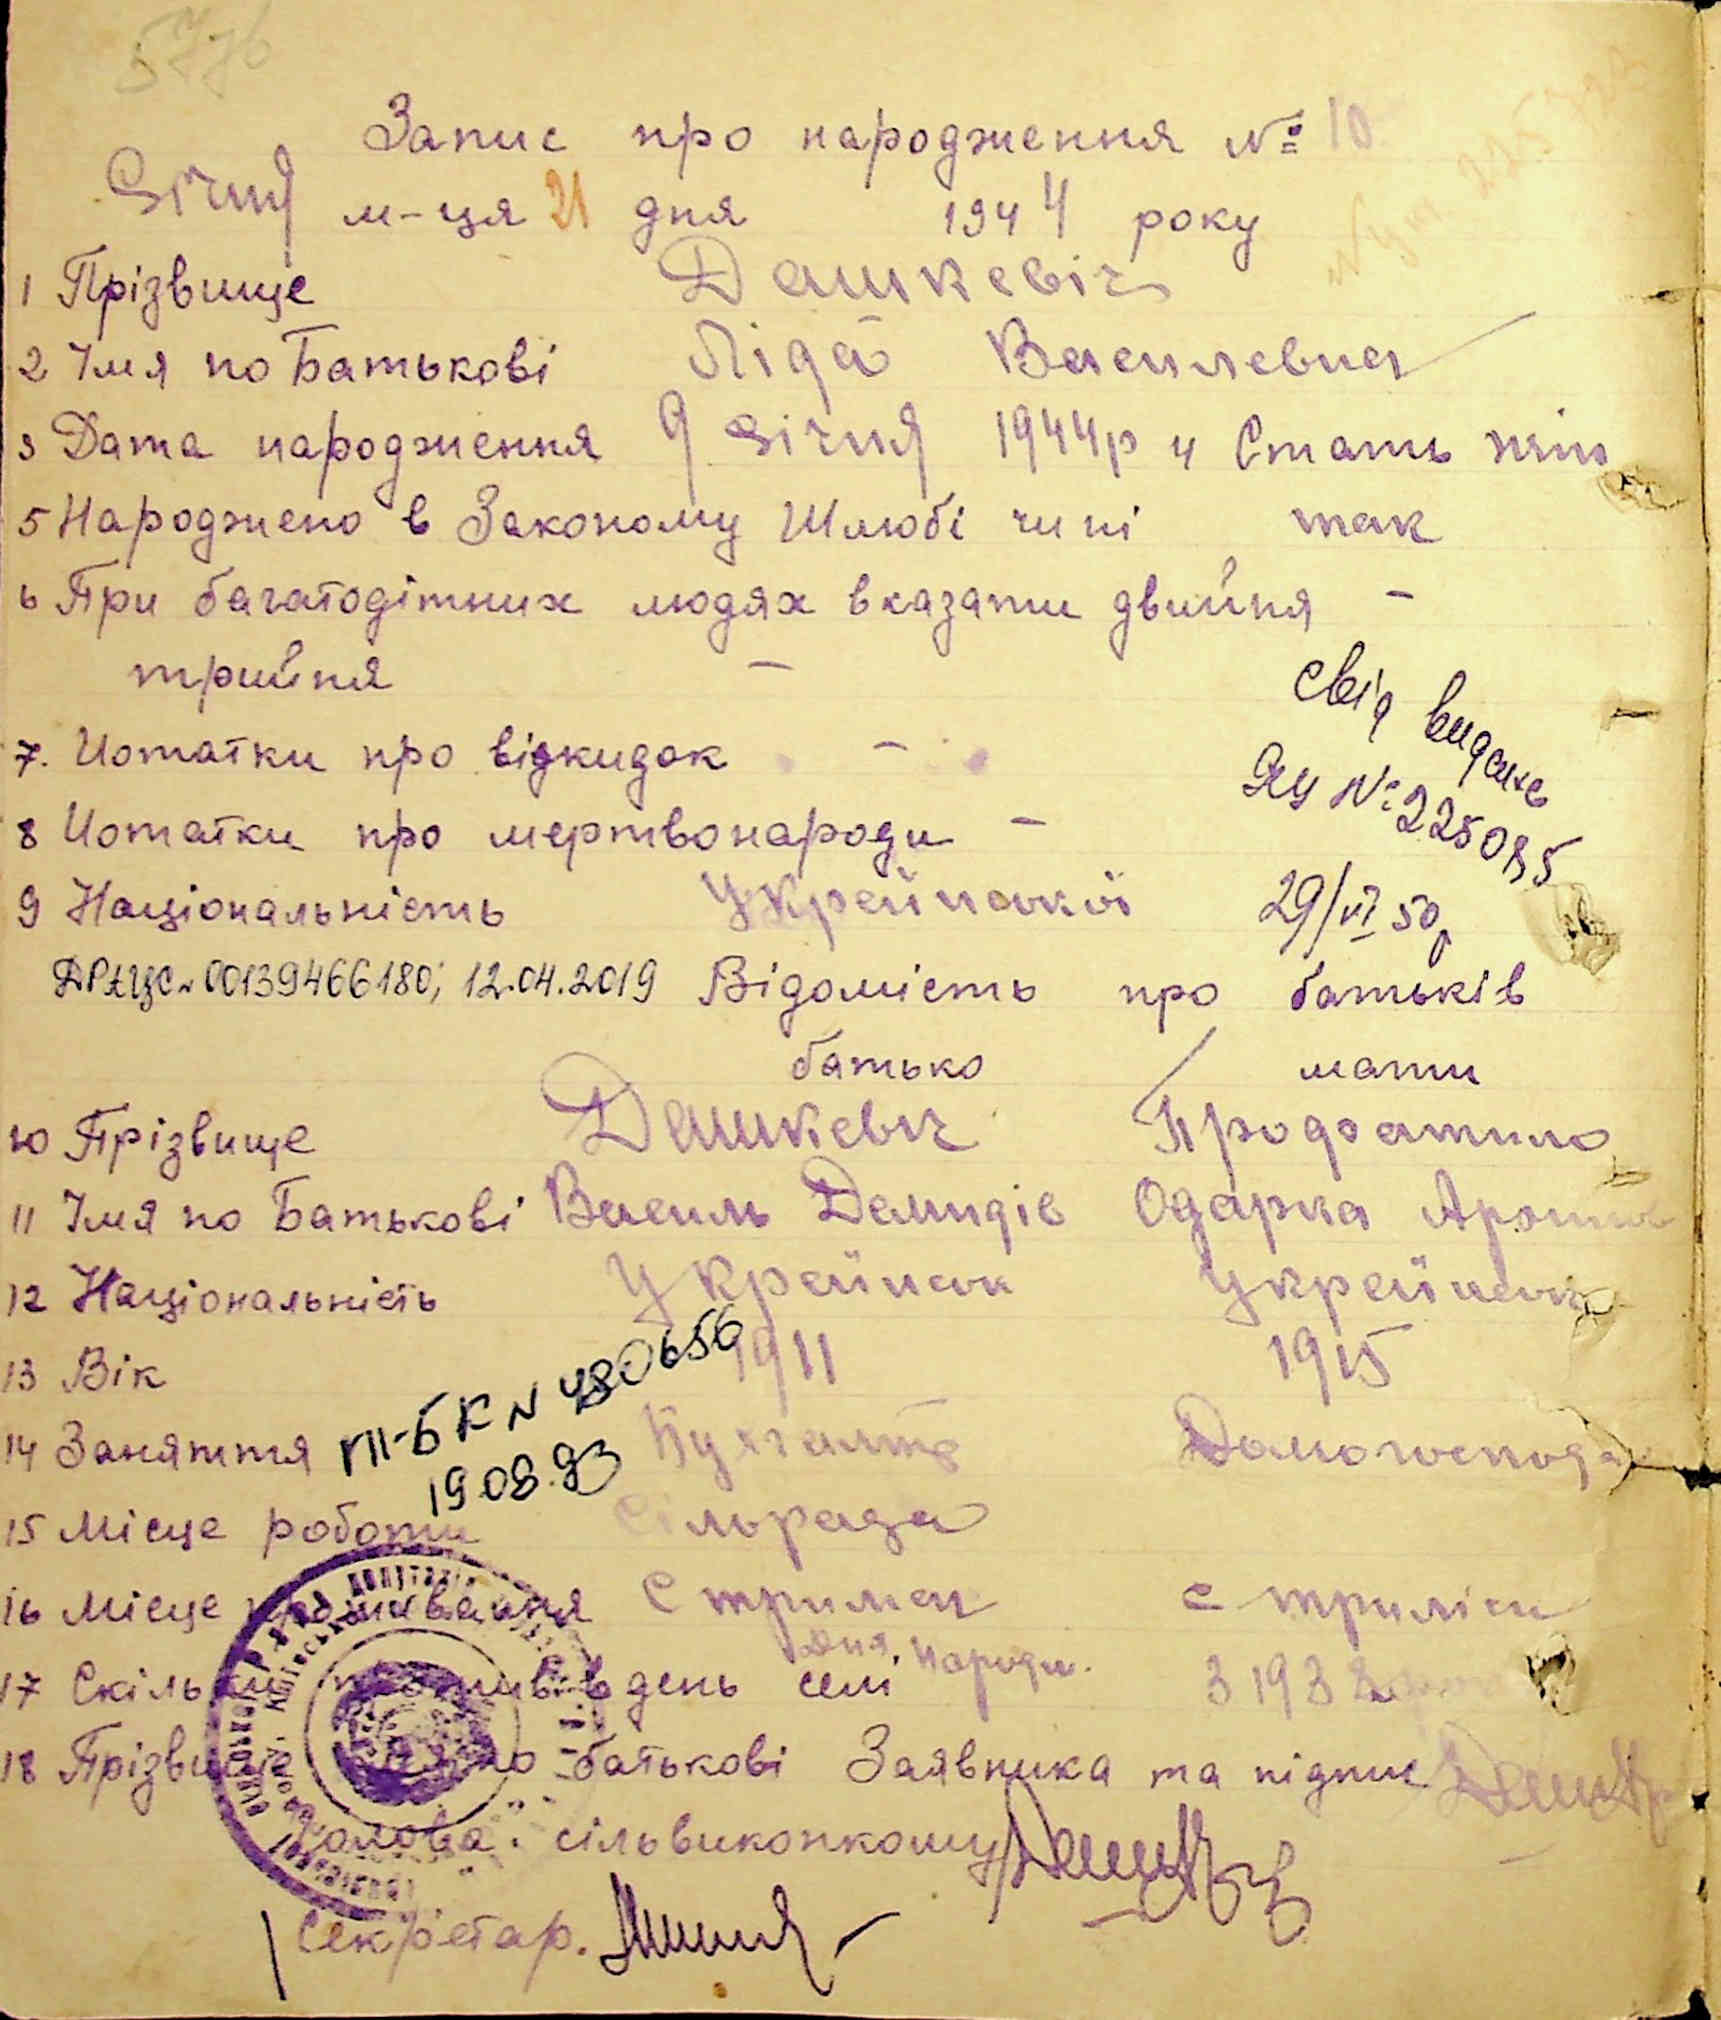 5776
Запис про народження № 10
Січня м-ця 21 дня 1944 року
1 Прізвище Дашкевіч
2 Імя по Батькові Ліда Василевна
3 Дата народження 9 Січня 1944р 4 Стать жін
5 Народжено в Законому Шлюбі чи ні так
6 При багатодітних людях вказати двийня -
трийня -
7. Нотатки про відкидок -
8 Нотатки про мертвонароди -
9 Національність Українскої
свід видане
ЯЦ № 225085
29/VI 50р
ДРАЦС № 00139466180; 12.04.2019 Відомість про батьків
батько / мати
10 Прізвище Дашкевіч
11 Імя по Батькові Василь Демидів Одарка
12 Національність Українск Українск
13 Вік 1911 1915
14 Заняття Бухгалтер Домогоспода
VII-БК № 480656
19.08.93
15 Місце роботи Сільрада
16 Місце проживання
17 Скільки прожив в день селі народж. З 1938
18 Прізвище імя по батькові Заявника та підпис
Голова сільвиконкому
Секретар.